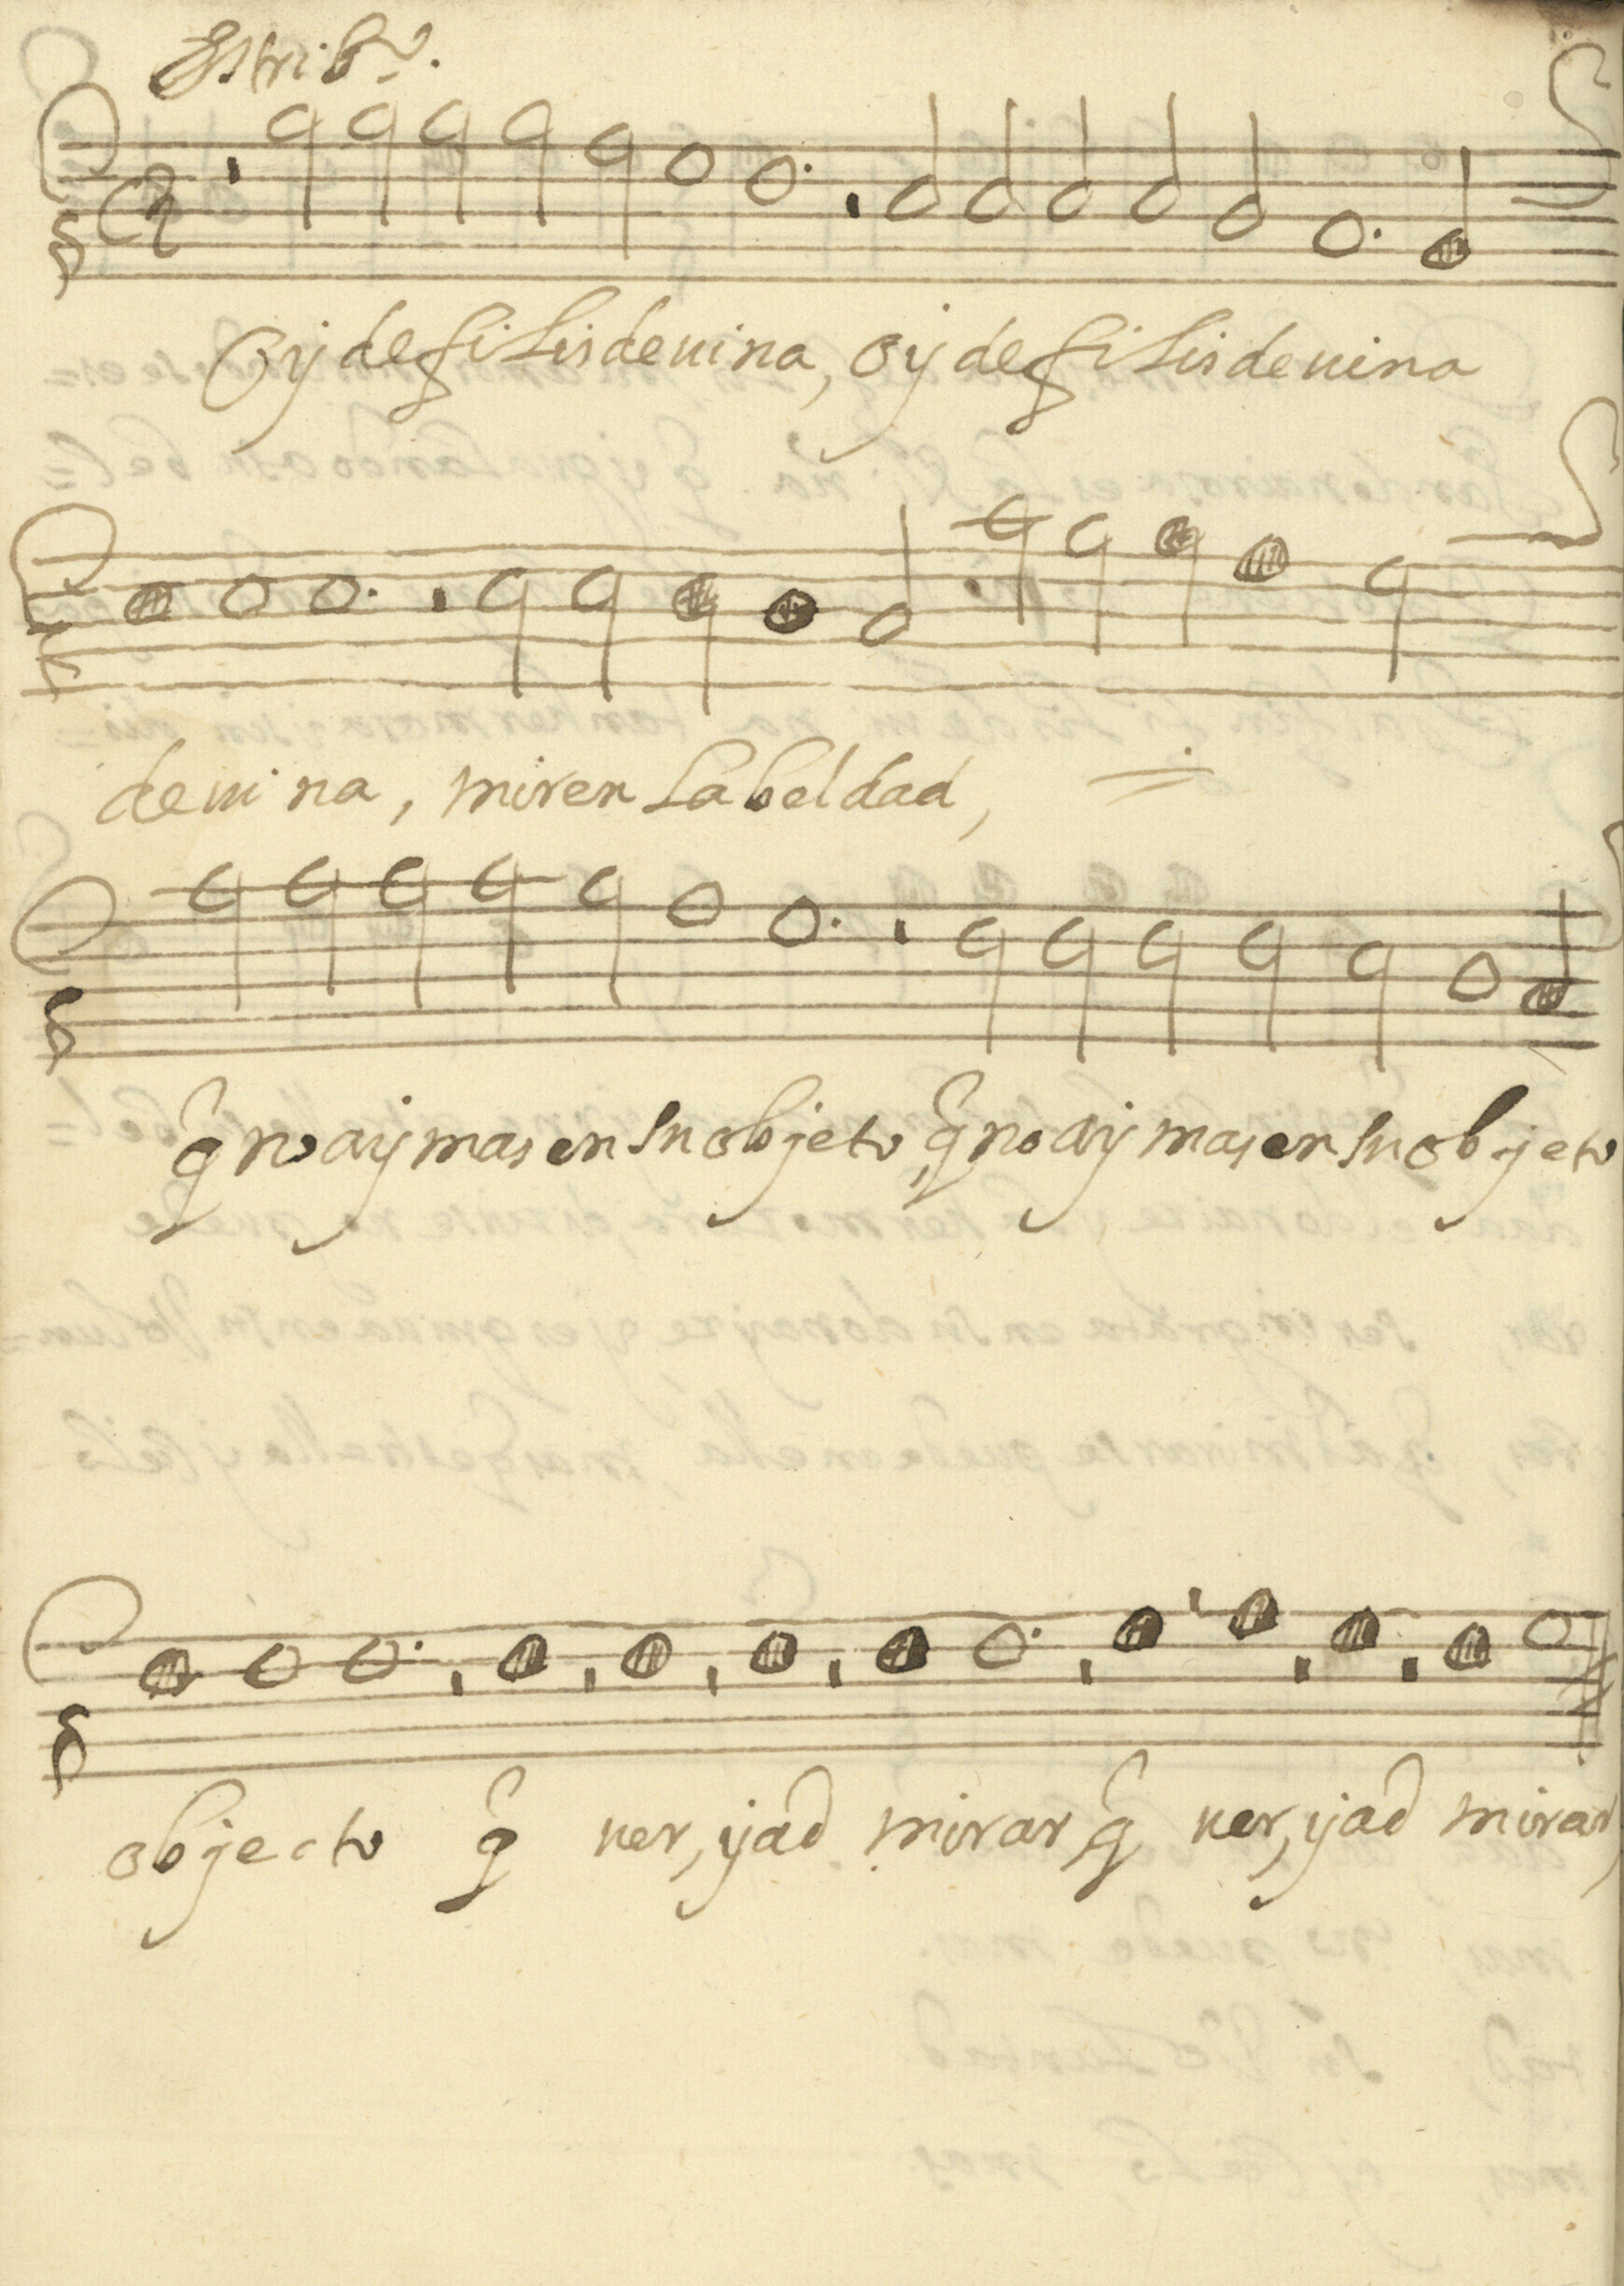 Estribo.
Oy de filis deuina, oy de filis deuina
deuina, miren la beldad,
q̃ no ay mas en su objeto q̃ no ay mas en su objeto
objecto q̃ uer, y ad mirar q̃ uer, y ad mirar,